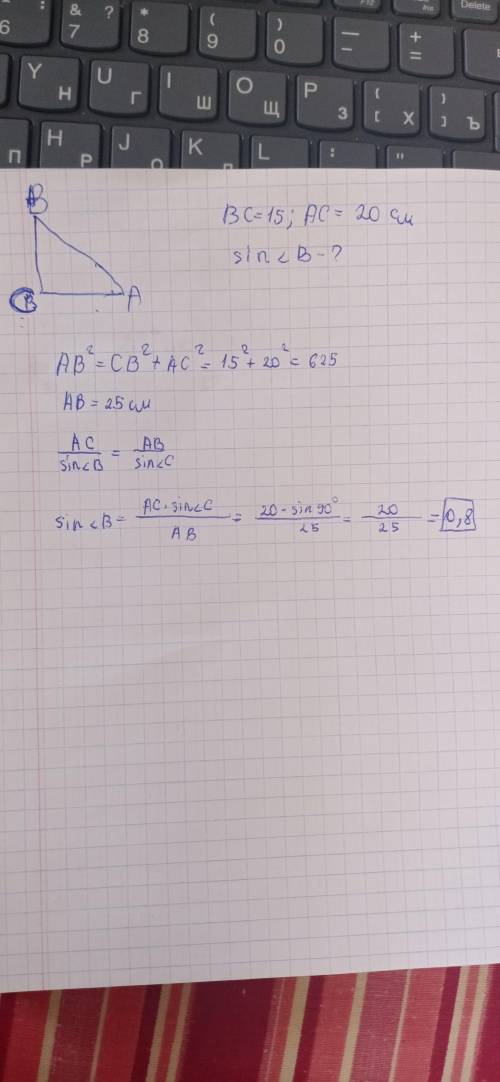 6 & 7 ? * 8 ( 9 ) 0 — - + = F12 Ins Delete
Y Н U Г I Ш O Щ P З { [ Х } ] Ъ
П H Р J О K Л L : "
B
BC=15; AC= 20 см
sin∠B-?
B A
AB² = CB² + AC² = 15² + 20² = 625
AB = 25 см
AC/sin∠B = AB/sin∠C
sin∠B = AC·sin∠C/AB = 20·sin90°/25 = 20/25 = 0,8